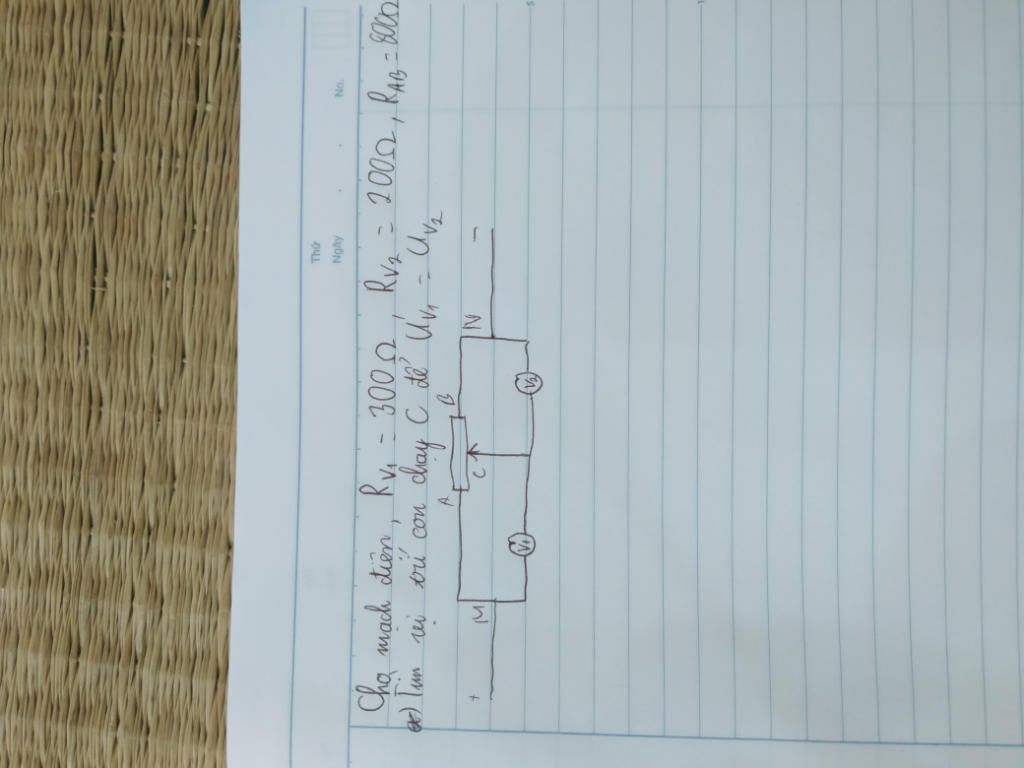 Thứ
Ngày
No.
Cho mạch điện, RV1 = 300Ω, RV2 = 200Ω, RAB =
*) Tìm vị trí con chạy C để UV1 = UV2
A B
+ M C N -
V1 V2